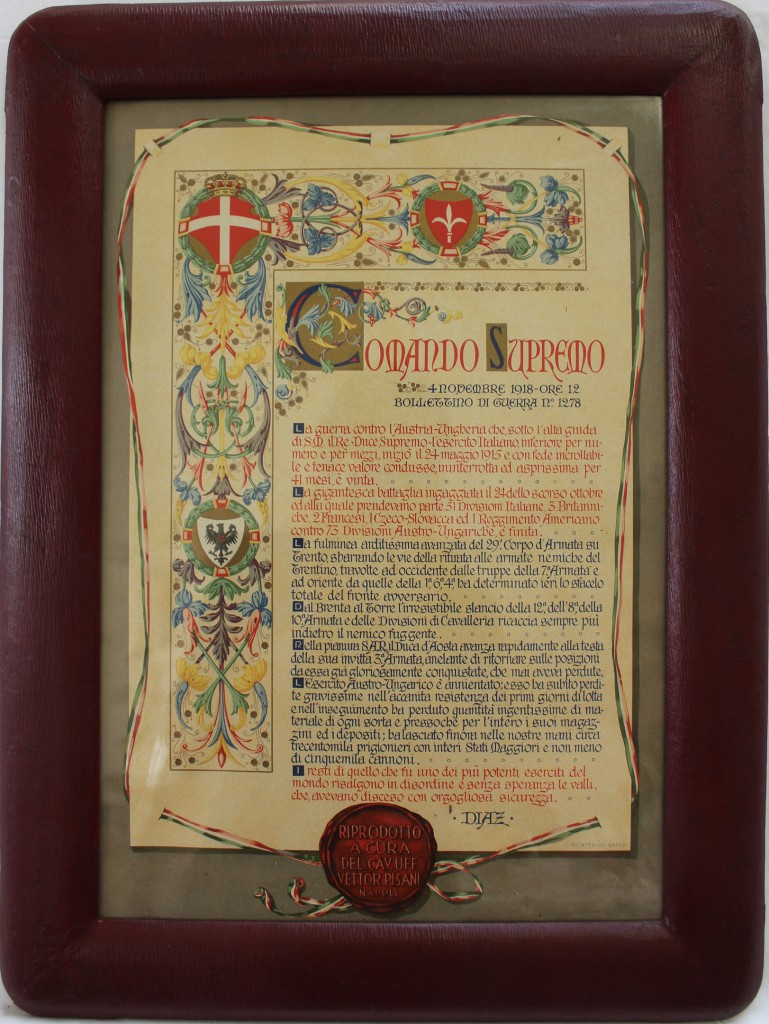 COMANDO SUPREMO
4 NOVEMBRE 1918 - ORE 12
BOLLETTINO DI GUERRA Nº 1278
La guerra contro l'Austria-Ungheria che, sotto l'alta guida
di S.M. il Re - Duce Supremo - l'esercito Italiano, inferiore per nu-
mero e per mezzi, iniziò il 24 maggio 1915 e con fede incrollabi-
le e tenace valore condusse, ininterrotta ed asprissima per
41 mesi, è vinta.
La gigantesca battaglia ingaggiata il 24 dello scorso ottobre
ed alla quale prendevano parte 51 Divisioni Italiane, 3 Britanni-
che, 2 Francesi, 1 Czeco-Slovacca ed 1 Reggimento Americano
contro 73 Divisioni Austro-Ungariche, è finita.
La fulminea arditissima avanzata del 29º Corpo d'Armata su
Trento, sbarrando le vie della ritirata alle armate nemiche del
Trentino, travolte ad occidente dalle truppe della 7ª Armata e
ad oriente da quelle della 1ª, 6ª, 4ª, ha determinato ieri lo sfacelo
totale del fronte avversario.
Dal Brenta al Torre l'irresistibile slancio della 12ª, dell'8ª, della
10ª Armata e delle Divisioni di Cavalleria ricaccia sempre più
indietro il nemico fuggente.
Nella pianura S.A.R. il Duca d'Aosta avanza rapidamente alla testa
della sua invitta 3ª Armata, anelante di ritornare sulle posizioni
da essa già gloriosamente conquistate, che mai aveva perdute.
L'Esercito Austro-Ungarico è annientato: esso ha subito perdi-
te gravissime nell'accanita resistenza dei primi giorni di lotta
e nell'inseguimento ha perduto quantità ingentissime di ma-
teriale di ogni sorta e pressochè per l'intero i suoi magaz-
zini ed i depositi; ha lasciato finora nelle nostre mani circa
trecentomila prigionieri con interi Stati Maggiori e non meno
di cinquemila cannoni.
I resti di quello che fu uno dei più potenti eserciti del
mondo risalgono in disordine e senza speranza le valli,
che avevano disceso con orgogliosa sicurezza.
· DIAZ ·
RIPRODOTTO
A CURA
DEL CAV. UFF.
VETTOR PISANI
NAPOLI